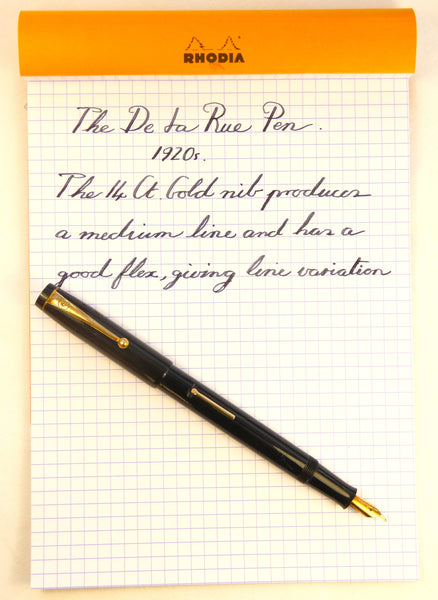 RHODIA
The De La Rue Pen.
1920s.
The 14 Ct. Gold nib produces
a medium line and has a
good flex, giving line variation